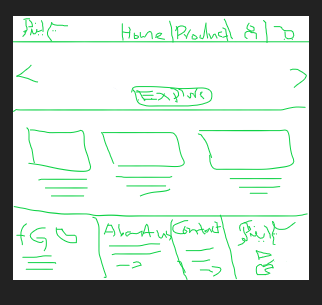 Home | Product
Explore
f G About us Contact